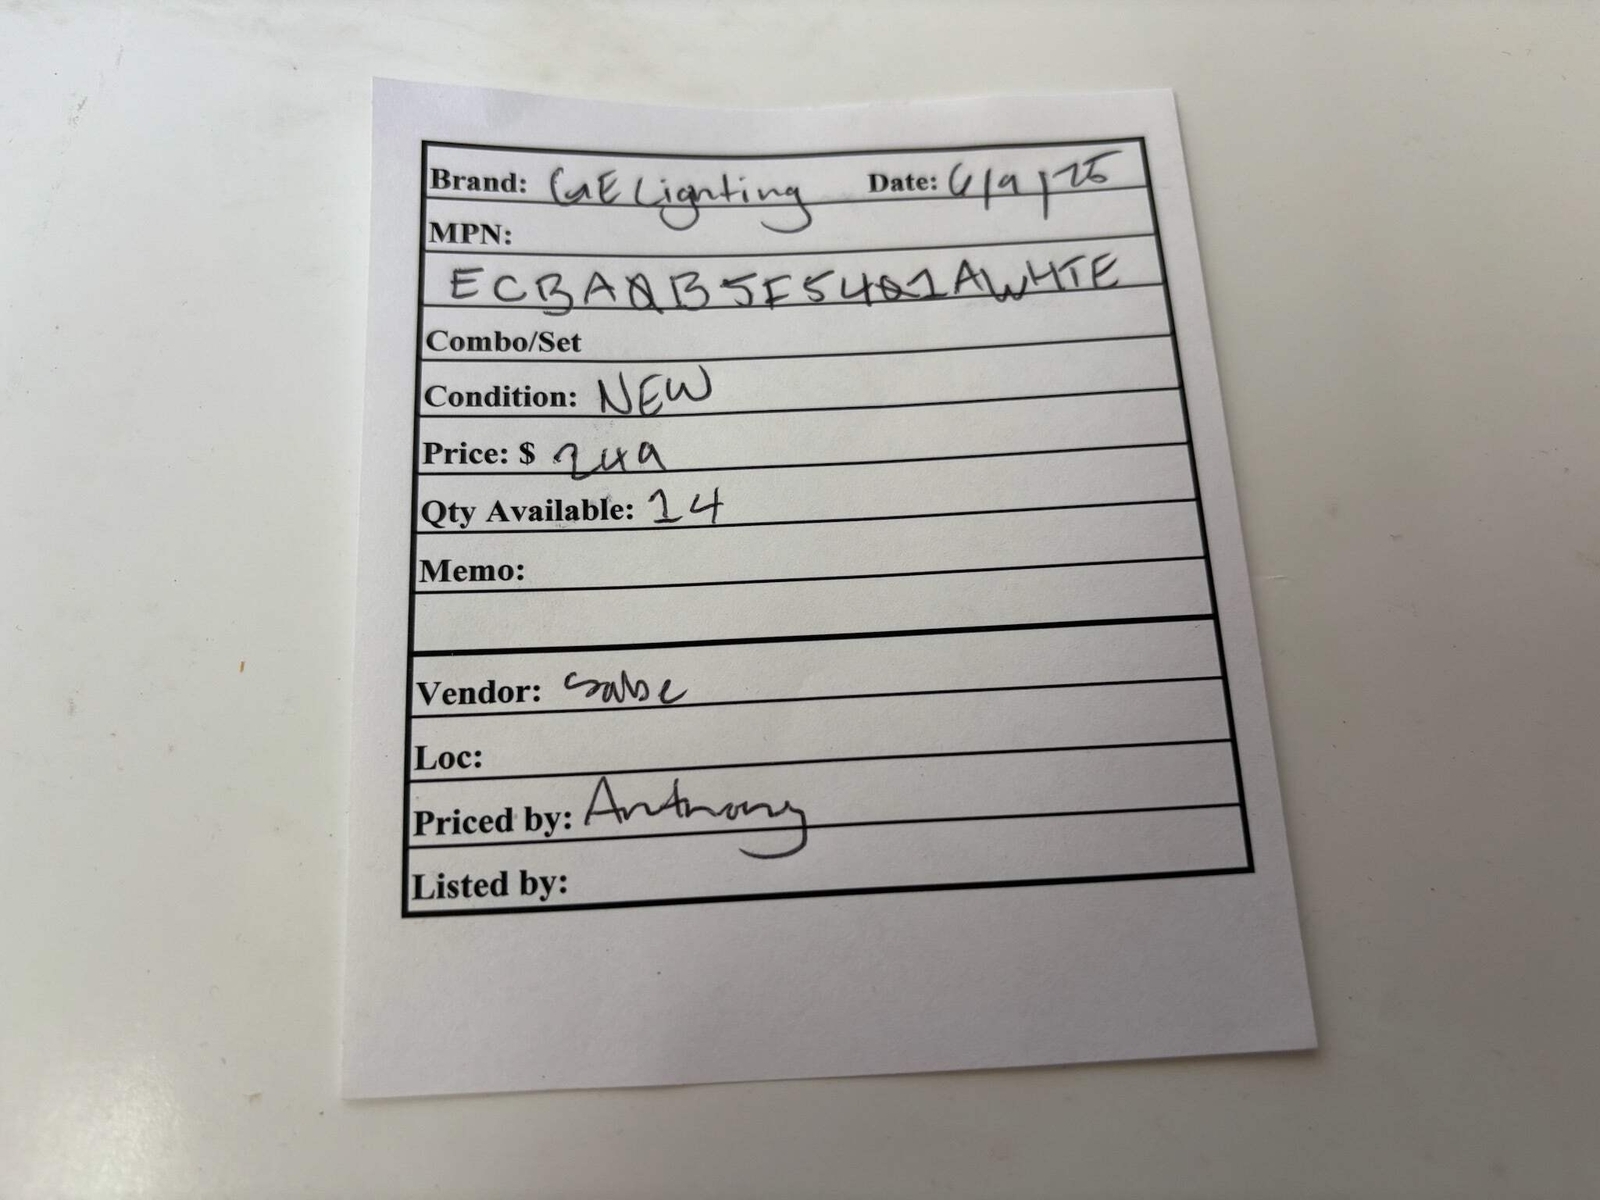 Brand: GE Lighting Date: 6/9/25
MPN:
ECBA0B5F5401AWHTE
Combo/Set
Condition: NEW
Price: $ 249
Qty Available: 14
Memo:
Vendor: Sabe
Loc:
Priced by: Anthony
Listed by: